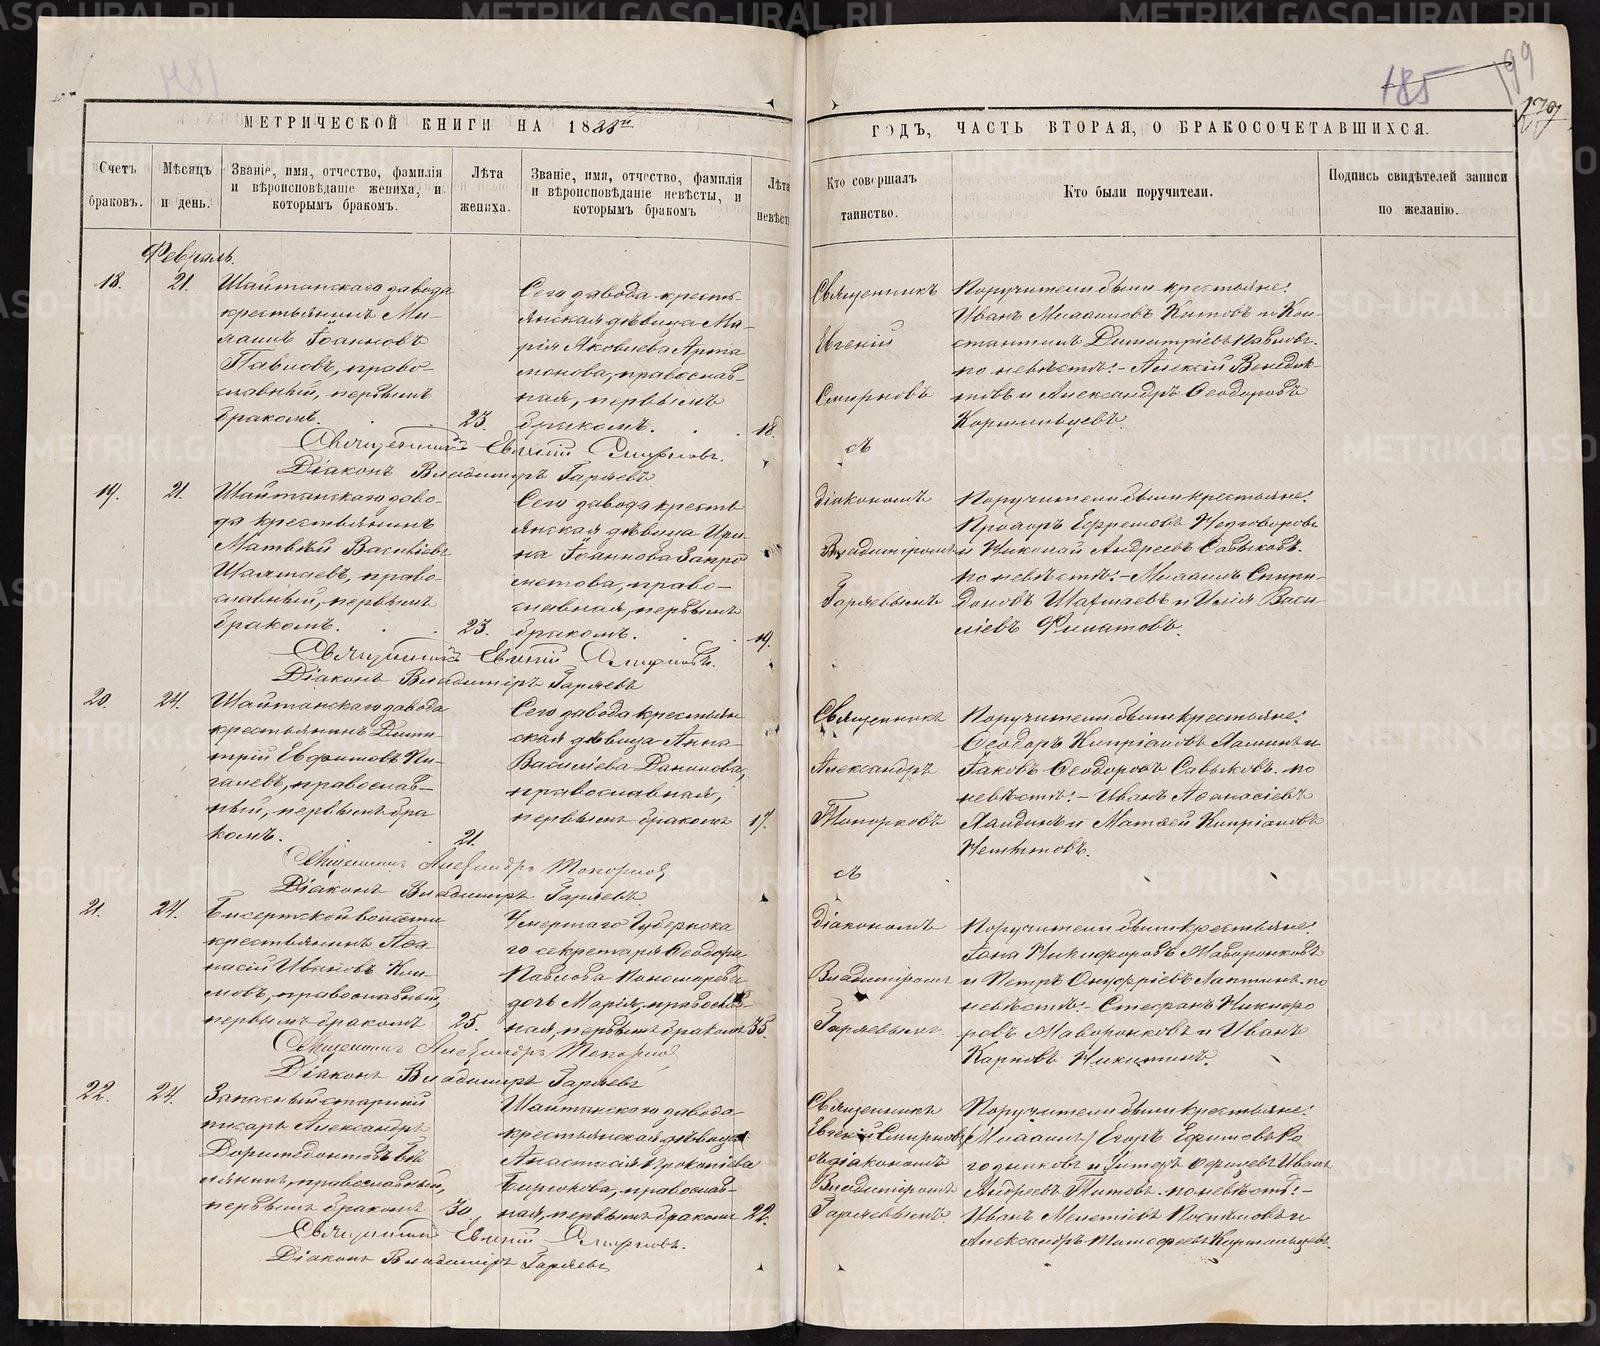 185
99
179
МЕТРИЧЕСКОЙ КНИГИ НА 1888й
ГОДЪ, ЧАСТЬ ВТОРАЯ, О БРАКОСОЧЕТАВШИХСЯ.
Счетъ браковъ.
Мѣсяцъ и день.
Званіе, имя, отчество, фамилія и вѣроисповѣданіе жениха, и которымъ бракомъ.
Лѣта жениха.
Званіе, имя, отчество, фамилія и вѣроисповѣданіе невѣсты, и которымъ бракомъ
Лѣта невѣст
Кто совершалъ таинство.
Кто были поручители.
Подпись свидѣтелей записи по желанію.
Февраль.
18.
21.
Шайтанскаго завода
крестьянинъ Ми-
хаилъ Іоанновъ
Павловъ, право-
славный, первымъ
бракомъ.
23.
Сего завода кресть-
янская дѣвица Ма-
рія Яковлева Арта
монова, православ-
ная, первымъ
бракомъ.
18.
Священникъ
Евгеній
Смирновъ
съ
Поручители были крестьяне:
Иванъ Михаиловъ Китовъ и Кон-
стантинъ Димитріевъ Павловъ.
по невѣстѣ: - Алексій Венедик-
товъ и Александръ Ѳеодоровъ
Кормильцевъ.
Священникъ Евгеній Смирновъ.
Діаконъ Владиміръ Гаряевъ.
19.
21.
Шайтанскаго заво-
да крестьянинъ
Матвѣй Васильевъ
Шахмаевъ, право-
славный, первымъ
бракомъ.
23.
Сего завода кресть
янская дѣвица Ири
на Іоаннова Запро
метова, право-
славная, первымъ
бракомъ.
19.
діакономъ
Владиміромъ
Гаряевымъ
Поручители были крестьяне:
Прохоръ Ефремовъ Недговоровъ
и Николай Андреевъ Савыковъ.
по невѣстѣ: - Михаилъ Спири-
доновъ Шахмаевъ и Илія Васи-
ліевъ Филатовъ.
Священникъ Евгеній Смирновъ.
Діаконъ Владиміръ Гаряевъ
20.
24.
Шайтанскаго завода
крестьянинъ Дими-
трій Евфимовъ Пи-
галевъ, православ-
ный, первымъ бра
комъ.
21.
Сего завода крестьян
ская дѣвица Анна
Василіева Данилова,
православная,
первымъ бракомъ
17.
Священникъ
Александръ
Топорковъ
съ
Поручители были крестьяне:
Ѳеодоръ Кипріановъ Лапинъ и
Іаковъ Ѳеодоровъ Савыковъ. по
невѣстѣ: - Иванъ Аѳанасіевъ
и Матѳей Кипріановъ
Священникъ Александръ Топорковъ
Діаконъ Владиміръ Гаряевъ.
21.
24.
Бисертской волости
крестьянинъ Аѳа-
насій Ивановъ Кли-
мовъ, православный,
первымъ бракомъ
25.
Умершаго Губернска
го секретаря Ѳеодора
Павлова Пономарева
дочь Марія, православ-
ная, первымъ бракомъ
35.
діакономъ
Владиміромъ
Гаряевымъ.
Поручители были крестьяне:
Іона Никифоровъ Маворонковъ
и Петръ Онуфріевъ Лаптинъ. по
невѣстѣ: - Стефанъ Никифо
ровъ Маворонковъ и Иванъ
Карповъ Никитинъ.
Священникъ Александръ Топорковъ
Діаконъ Владиміръ Гаряевъ
22.
24.
Запасный старшій
писарь Александръ
Доримедонтовъ Бѣ
лянинъ, православный,
первымъ бракомъ
30.
Шайтанскаго завода
крестьянская дѣвица
Анастасія Прокопіева
Бирюкова, православ-
ная, первымъ бракомъ
22.
Священникъ
Евгеній Смирновъ
съ діакономъ
Владиміромъ
Гаряевымъ.
Поручители были крестьяне:
(Михаилъ) Егоръ Ефимовъ Ро
Андреевъ Титовъ. по невѣстѣ: -
Иванъ Мелетіевъ Поспѣловъ и
Александръ Тимофеевъ Кормильцевъ.
Священникъ Евгеній Смирновъ.
Діаконъ Владиміръ Гаряевъ
METRIKI.GASO-URAL.RU